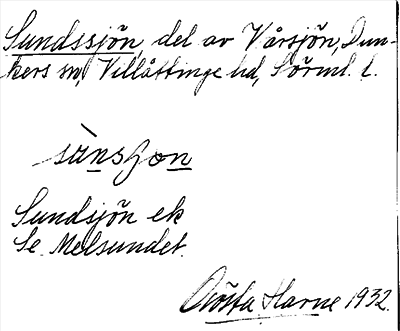 Sundssjön, del av Vårsjön, Dun-
kers sn, Villåttinge hd, Sörml. l.
Sundsjön ek
Se Melsundet.
Gösta Harne 1932.